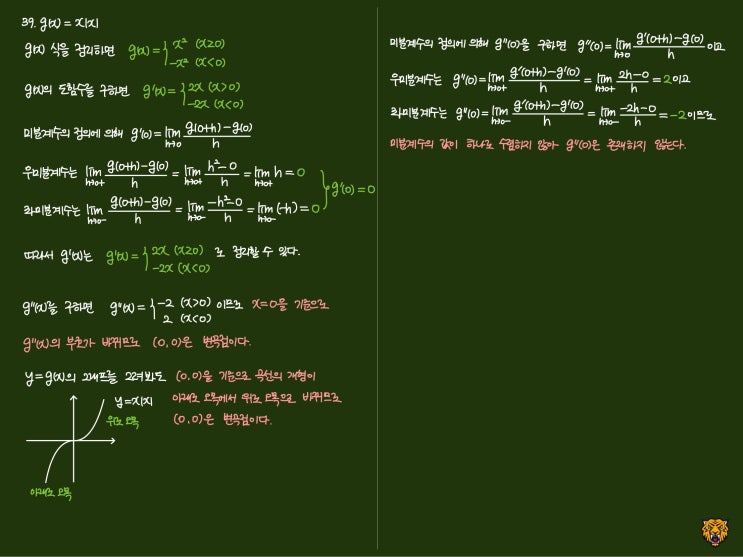 39. g(x) = x|x|
g(x) 식을 정리하면 g(x) = { x² (x≥0)
-x² (x<0)
g(x)의 도함수를 구하면 g'(x) = { 2x (x>0)
-2x (x<0)
미분계수의 정의에 의해 g'(0) = lim h→0 (g(0+h)-g(0))/h
우미분계수는 lim h→0+ (g(0+h)-g(0))/h = lim h→0+ (h²-0)/h = lim h→0+ h = 0
좌미분계수는 lim h→0- (g(0+h)-g(0))/h = lim h→0- (-h²-0)/h = lim h→0- (-h) = 0
} g'(0) = 0
따라서 g'(x)는 g'(x) = { 2x (x≥0) 로 정리할 수 있다.
-2x (x<0)
g''(x)를 구하면 g''(x) = { -2 (x>0) 이므로 x=0을 기준으로
2 (x<0)
g''(x)의 부호가 바뀌므로 (0,0)은 변곡점이다.
y=g(x)의 그래프를 그려봐도 (0,0)을 기준으로 곡선의 개형이
아래로 오목에서 위로 오목으로 바뀌므로
(0,0)은 변곡점이다.
y=x|x|
위로 오목
아래로 오목
미분계수의 정의에 의해 g''(0)을 구하면 g''(0) = lim h→0 (g'(0+h)-g(0))/h 이고
우미분계수는 g''(0) = lim h→0+ (g'(0+h)-g'(0))/h = lim h→0+ (2h-0)/h = 2이고
좌미분계수는 g''(0) = lim h→0- (g'(0+h)-g'(0))/h = lim h→0- (-2h-0)/h = -2이므로
미분계수의 값이 하나로 수렴하지 않아 g''(0)은 존재하지 않는다.